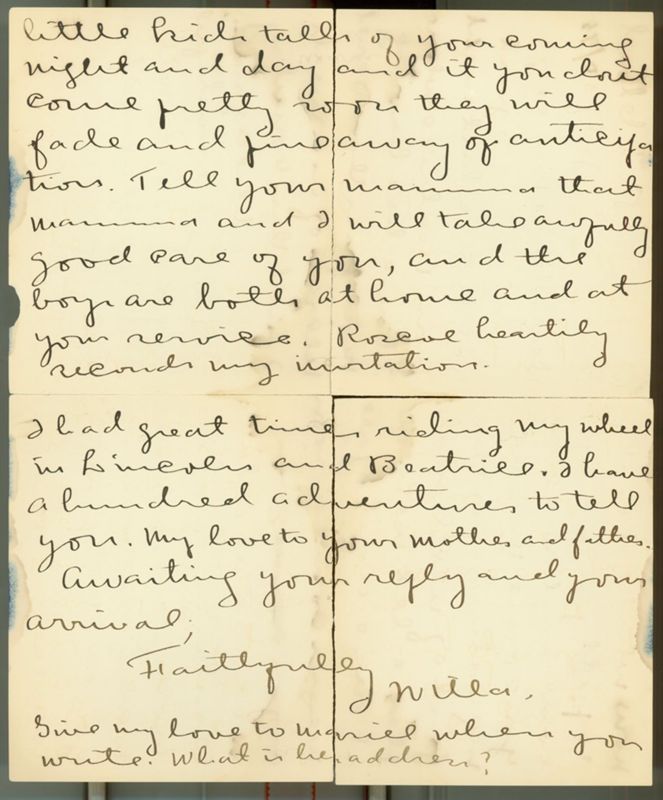 little kids talk of your coming
night and day and if you dont
come pretty soon they will
fade and pine away of anticipa
tion. Tell your mamma that
mamma and I will take awfully
good care of you, and the
boys are both at home and at
your service. Roscoe heartily
seconds my invitation.
I had great times riding my wheel
in Lincoln and Beatrice. I have
a hundred adventures to tell
you. My love to your mother and father.
Awaiting your reply and your
arrival,
Faithfully
Willa.
Give my love to Mariel when you
write. What is her address?